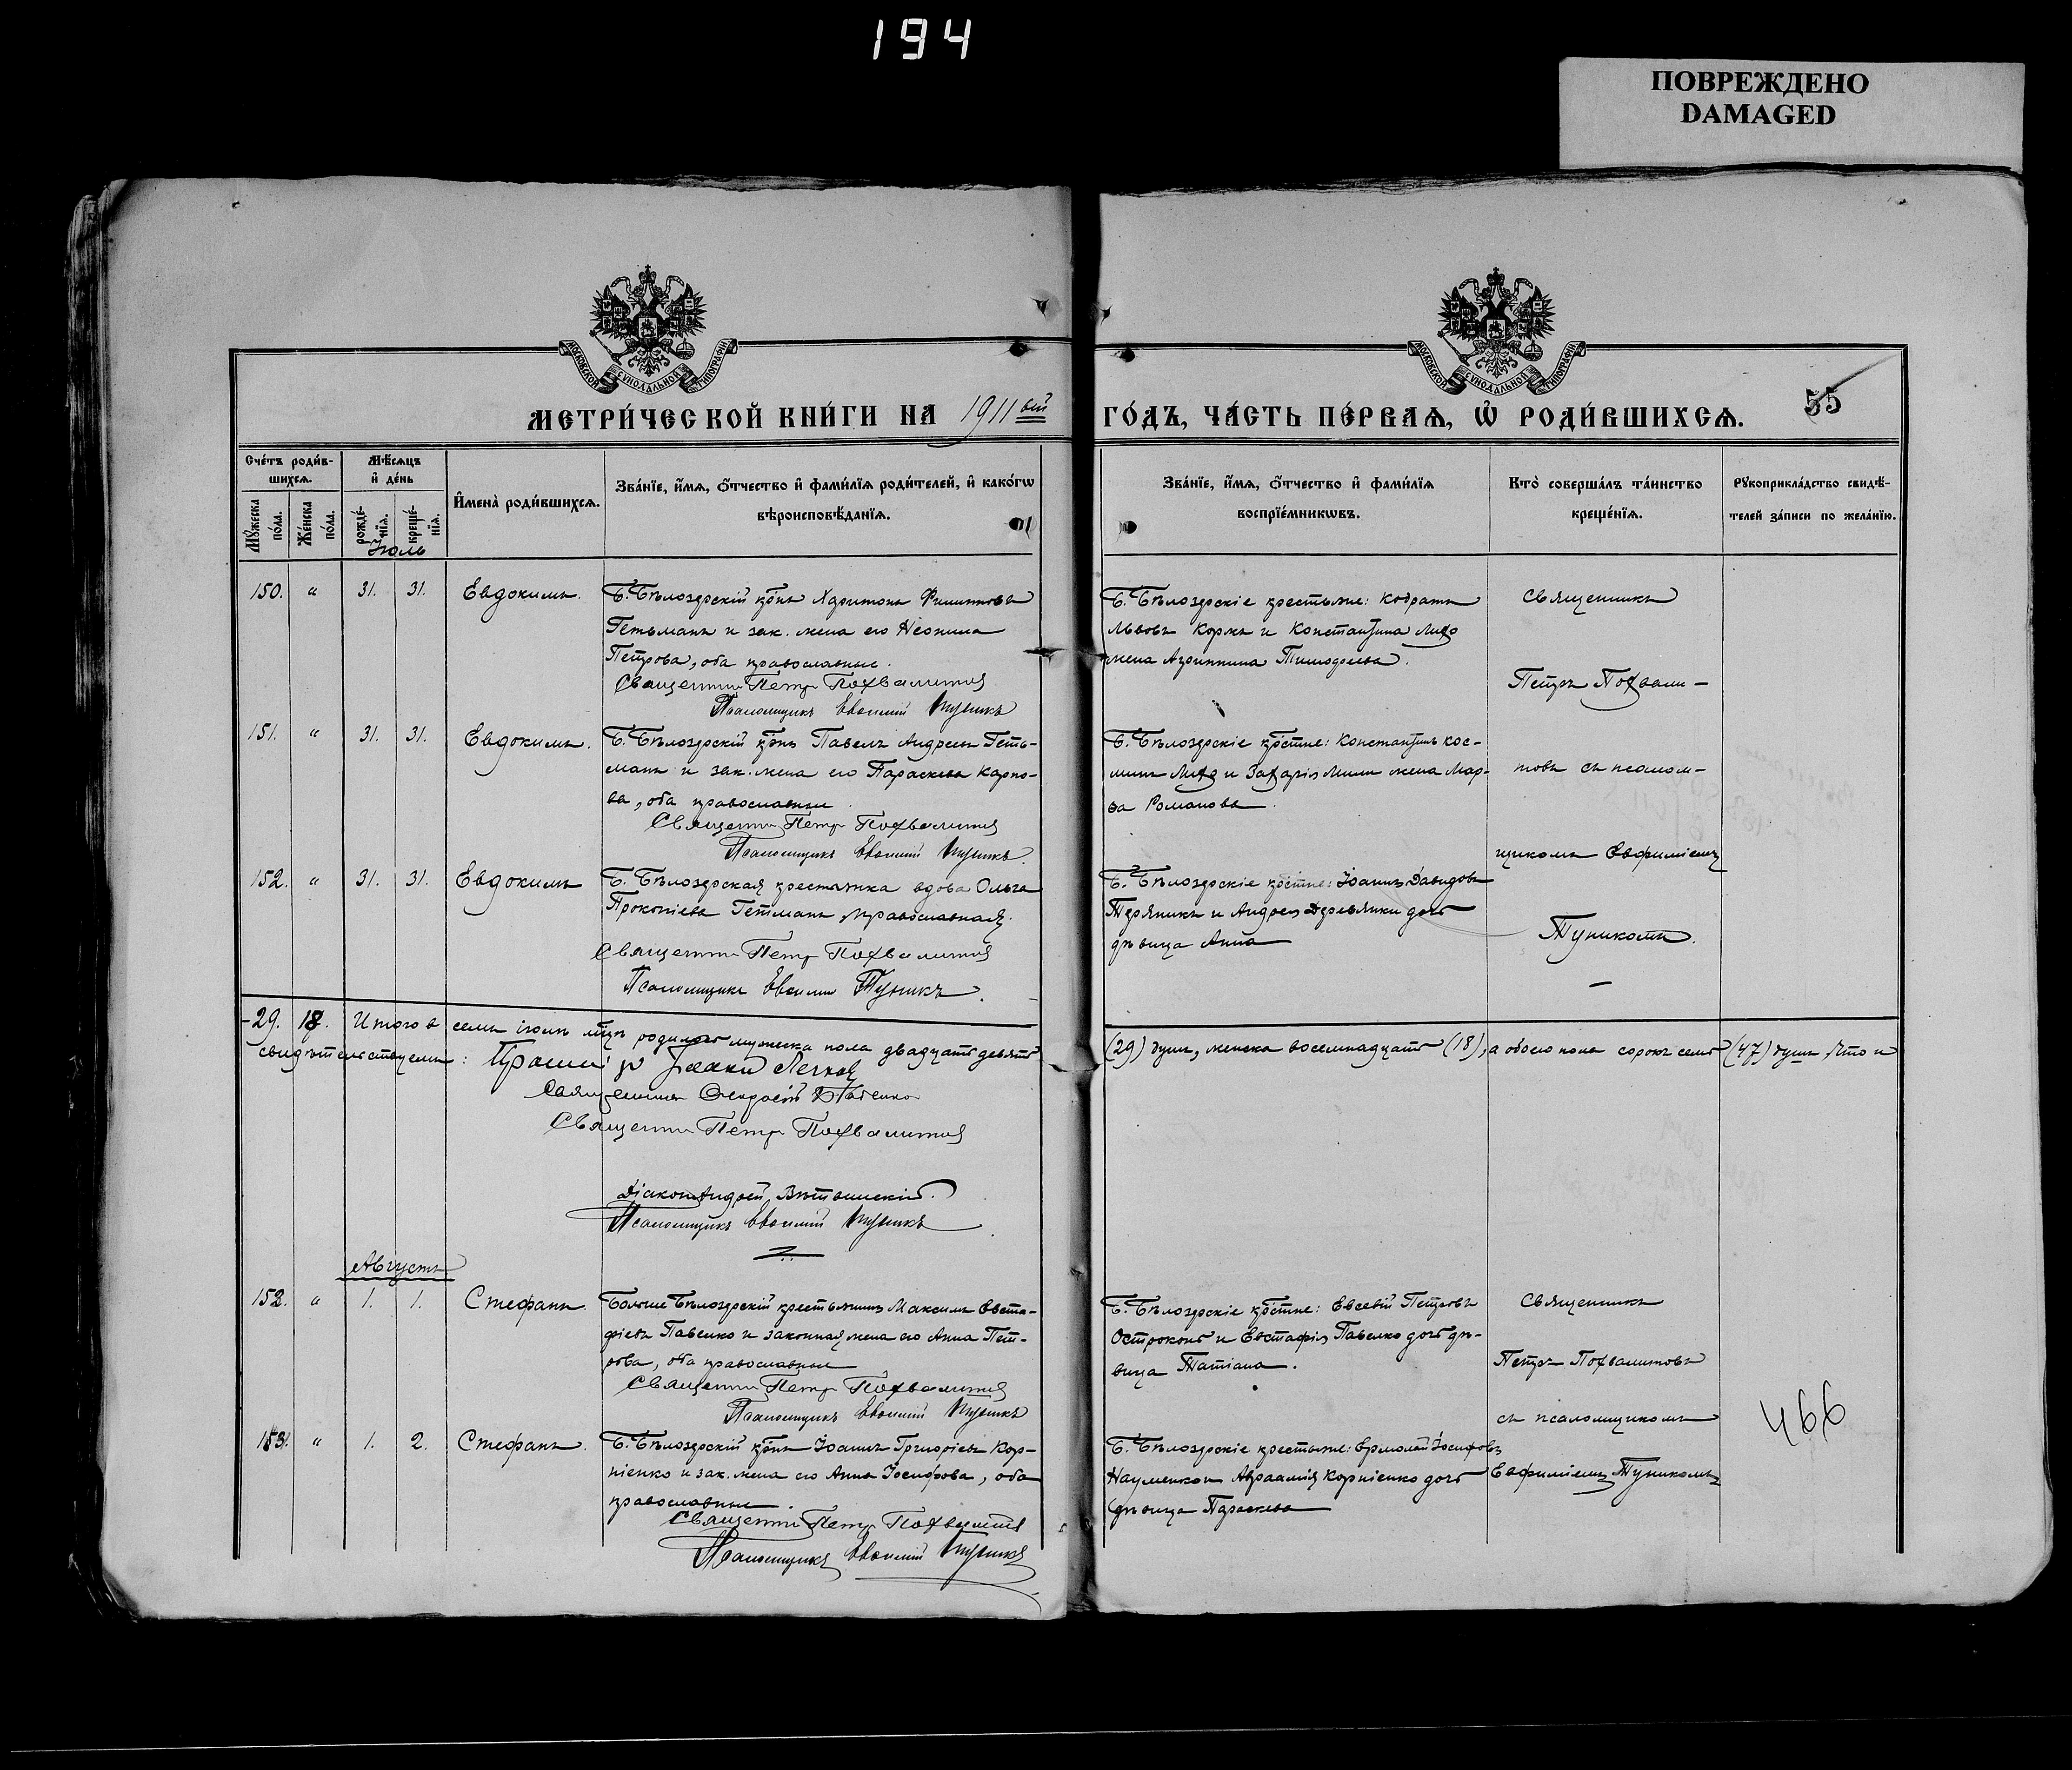 194
ПОВРЕЖДЕНО
DAMAGED
МОСКОВСКОЙ СѴНОДАЛЬНОЙ ТИПОГРАФІИ
МОСКОВСКОЙ СѴНОДАЛЬНОЙ ТИПОГРАФІИ
МЕТРИ́ЧЕСКОЙ КНИ́ГИ НА 1911 ый ГО́ДЪ, ЧА́СТЬ ПЕ́РВАѦ, Ѡ҆ РОДИ́ВШИХСѦ.
55
Сче́тъ роди́в-
шихсѧ.
Мѣ́сѧцъ
и҆ де́нь
Мꙋ́жеска по́ла.
Же́нска по́ла.
рожде́-нїѧ.
креще́-нїѧ.
И҆мена̀ роди́вшихсѧ.
Зва́нїе, и҆́мѧ, ѻ҆́тчество и҆ фами́лїѧ роди́телей, и҆ како́гѡ
вѣроисповѣ́данїѧ.
Зва́нїе, и҆́мѧ, ѻ҆́тчество и҆ фами́лїѧ
воспрїе́мникѡвъ.
Кто̀ соверша́лъ та́инство
креще́нїѧ.
Рꙋкоприкла́дство свидѣ́-
телей за́писи по жела́нїю.
Іюль
150. " 31. 31. Евдокимъ.
Б. Бѣлозерскій кр-нъ Харитонъ Филипповъ
Гетьманъ и зак. жена его Неонила
Петрова, оба православные.
Священникъ Петръ Похвалитовъ
Псаломщикъ Евфимій Туникъ
Б. Бѣлозерскіе крестьяне: Кодратъ
Львовъ Коржъ и Константина
жена Агриппина Тимофеева.
Священникъ
Петръ Похвали-
151. " 31. 31. Евдокимъ.
Б. Бѣлозерскій кр-нъ Павелъ Андреевъ Геть-
манъ и зак. жена его Параскева Карпо-
ва, оба православные
Священникъ Петръ Похвалитовъ
Псаломщикъ Евфимій Туникъ.
Б. Бѣлозерскіе кр-стяне: Константинъ Кос-
минъ и Захарія жена Мар-
ѳа Романова.
товъ съ псалом-
щикомъ Евфиміемъ
152. " 31. 31. Евдокимъ
Б. Бѣлозерская крестьянка вдова Ольга
Прокопіева Гетманъ, православная.
Священникъ Петръ Похвалитовъ
Псаломщикъ Евфимій Туникъ.
Б. Бѣлозерскіе кр-стяне: Іоаннъ Давидовъ
и Андрея Деревянки дочь
дѣвица Анна
Туникомъ.
29. 18. Итого въ семъ іюлѣ м-цѣ родилось мужеска пола двадцать девять (29) душъ, женска восемнадцать (18), а обоего пола сорокъ семь (47) душъ. Что и
свидѣтельствуемъ:
Священникъ
Священникъ Петръ Похвалитовъ
Діаконъ Андрей
Псаломщикъ Евфимій Туникъ
Августъ
152. " 1. 1. Стефанъ.
Больше Бѣлозерскій крестьянинъ Максимъ Евста-
фіевъ Павенко и законная жена его Анна Пет-
рова, оба православные
Священникъ Петръ Похвалитовъ
Псаломщикъ Евфимій Туникъ
Б. Бѣлозерскіе кр-стяне: Евсевій Петровъ
и Евстафія Павенко дочь дѣ-
вица Татіана.
Священникъ
Петръ Похвалитовъ
съ псаломщикомъ
153. " 1. 2. Стефанъ.
Б. Бѣлозерскій кр-нъ Іоаннъ Григоріевъ Кор-
ніенко и зак. жена его Анна Іосифова, оба
православные.
Священникъ Петръ Похвалитовъ
Псаломщикъ Евфимій Туникъ
Б. Бѣлозерскіе крестьяне: Ермолай Іосифовъ
Науменко и Авраамія Корніенко дочь
дѣвица Параскева
Евфиміемъ Туникомъ
466